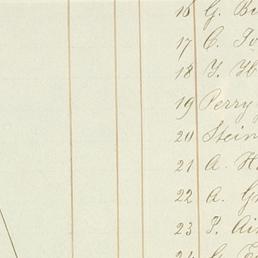 16 G. B
17 C.
18 T. H
19 Perry
20 Stein
21 A. H
22 A. G
23 P. Ai
24 G.